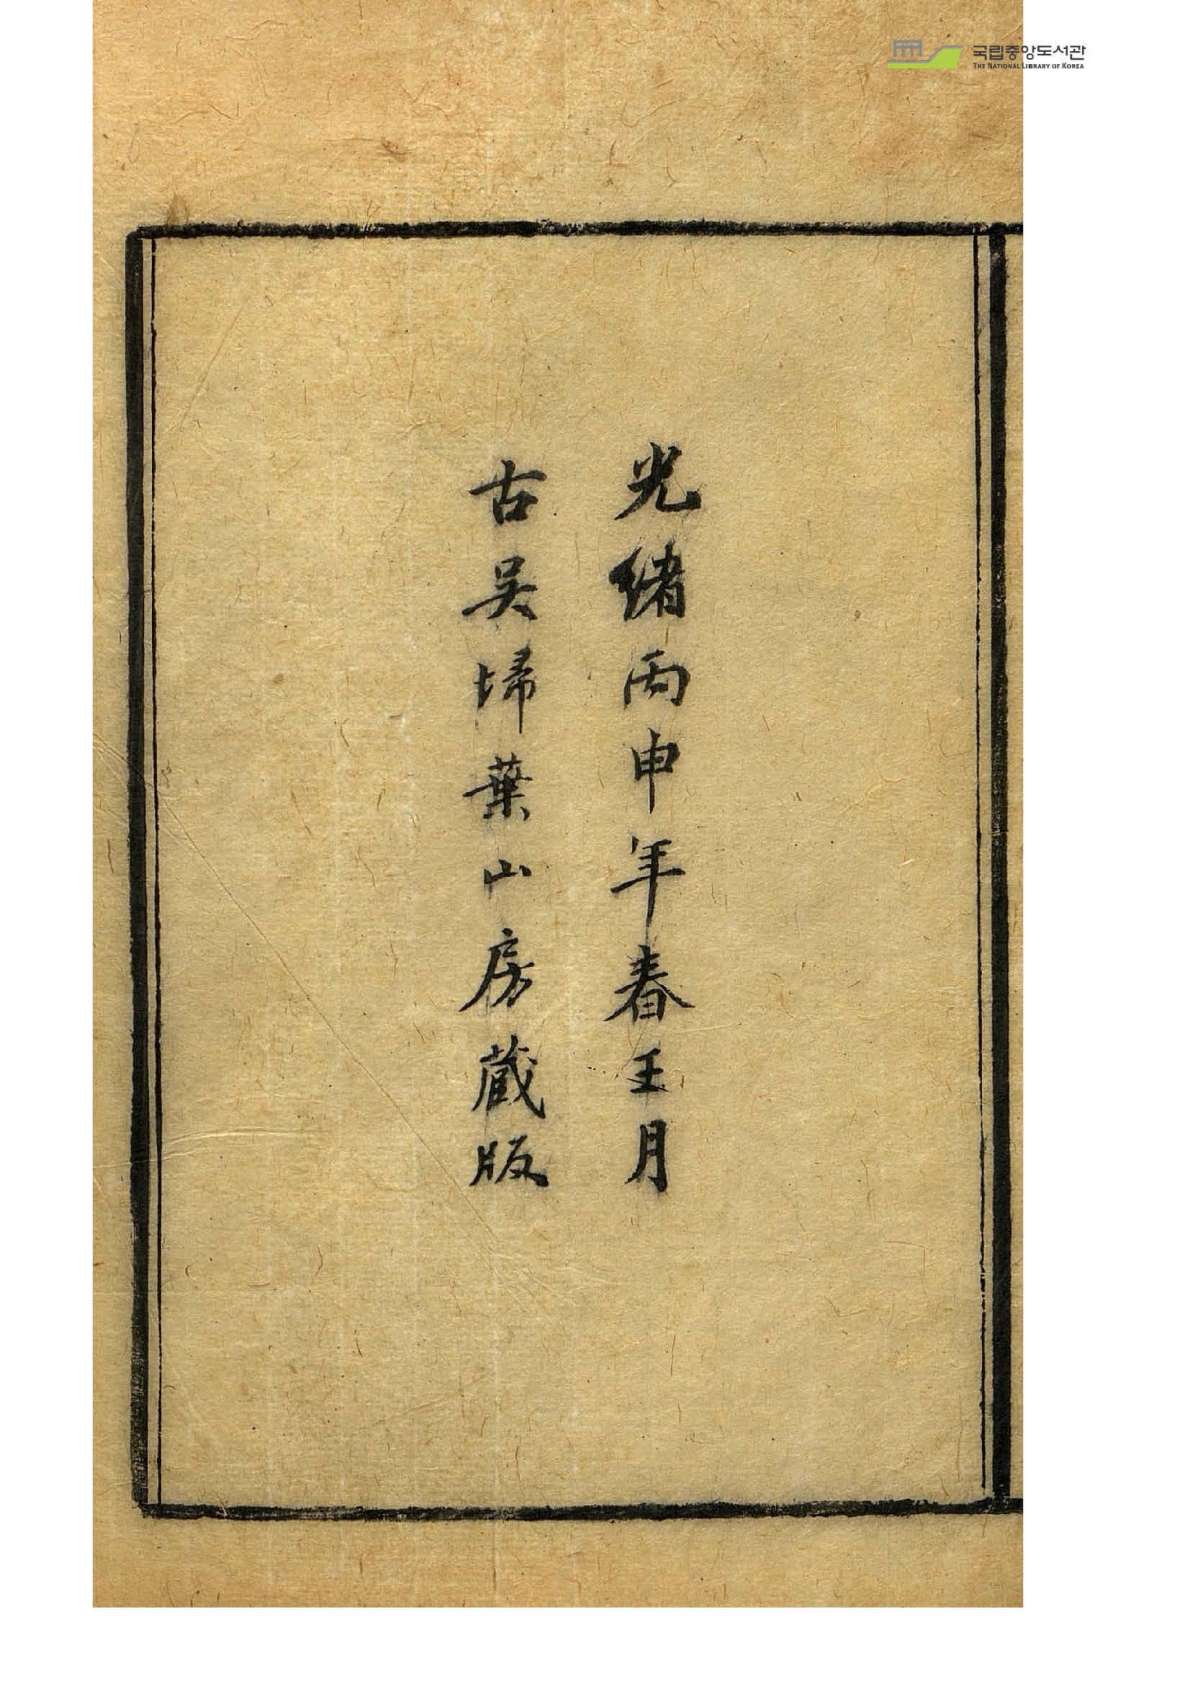 국립중앙도서관
THE NATIONAL LIBRARY OF KOREA
光緖丙申年春王月
古吴埽葉山房蔵版